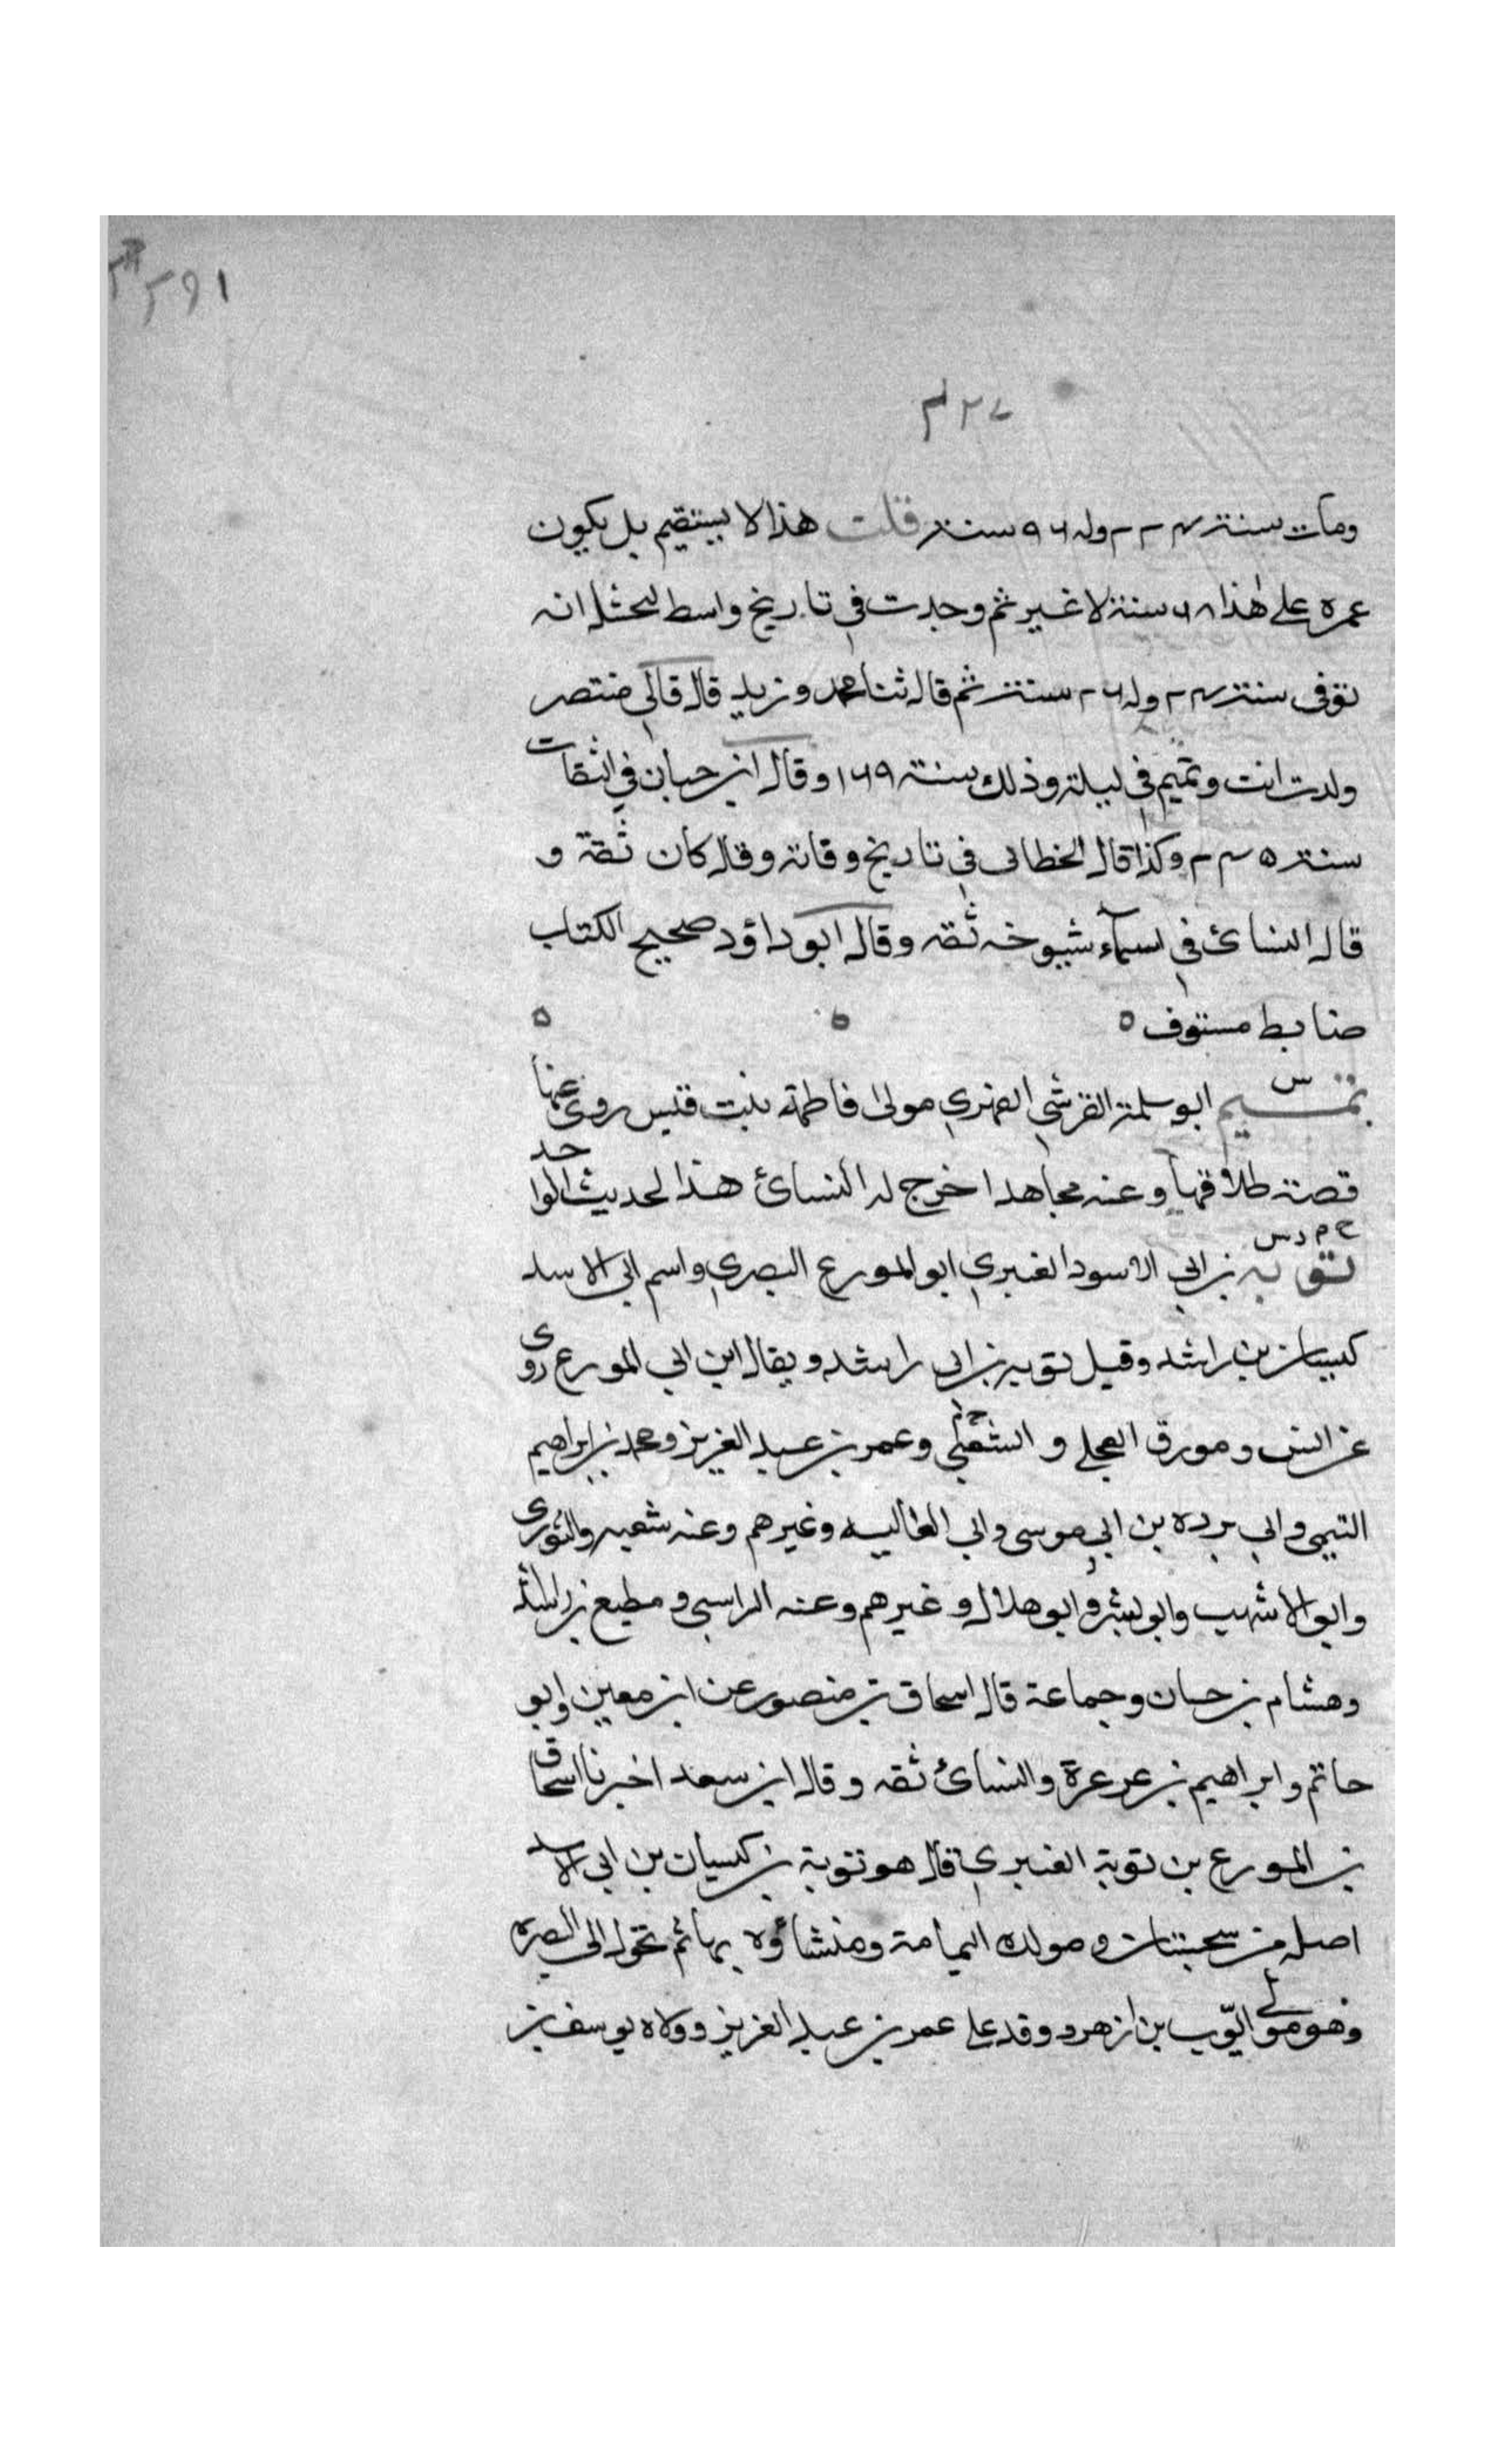 ومات سنة وله سنة قلت هذا لا يستقيم بل يكون
عمره على هٰذا سنة لا غير ثم وجدت في تاريخ واسط لبحشل انه
توفى سنة وله سنة ثم قال ثنا محمد وزيد قال قال لي منتصر
ولدت انت وتميم في ليلة وذلك سنة ١٦٩ وقال ابن حبان في الثقات
سنة وكذا قال الخطابى في تاريخ وفاته وقال كان ثقة و
قال النسائ في اسمآء شيوخه ثقه وقال ابو داؤد صحيح الكتاب
ضابط مستوف ٥
س
تميم ابو سلمة القرشي الفهري مولى فاطمة بنت قيس روى عنها
قصة طلاقها وعنه مجاهد اخرج له النسائ هذا لحديث الواحد
خ م د س
توبه بن ابي الاسود العنبري ابو المورع البصري واسم ابى الاسد
كيسان بن راشد وقيل توبه بن ابى راشد ويقال ابن ابي المورع روى
عن انس ومورق العجلى و الشعبي وعمر بن عبد العزيز ومحمد بن ابراهيم
التيمى وابي برده بن ابي موسى وابي العاليه وغيرهم وعنه شعبه والثورى
وابو الاشهب وابو بشر وابو هلال وغيرهم وعنه الراسبى ومطيع بن راشد
وهشام بن حسان وجماعة قال اسحاق بن منصور عن ابن معين وابو
حاتم وابراهيم بن عرعرة والنسائ ثقه وقال ابن سعد اخبرنا اسحاق
بن المورع بن توبة العنبري قال هو توبة بن كيسان بن ابى الاسد
اصله من سجستان ومولده اليمامة ومنشاؤه بها ثم تحول الى البصره
وهو مولى ايّوب بن ازهر ووفد على عمر بن عبد العزيز وولاه يوسف بن